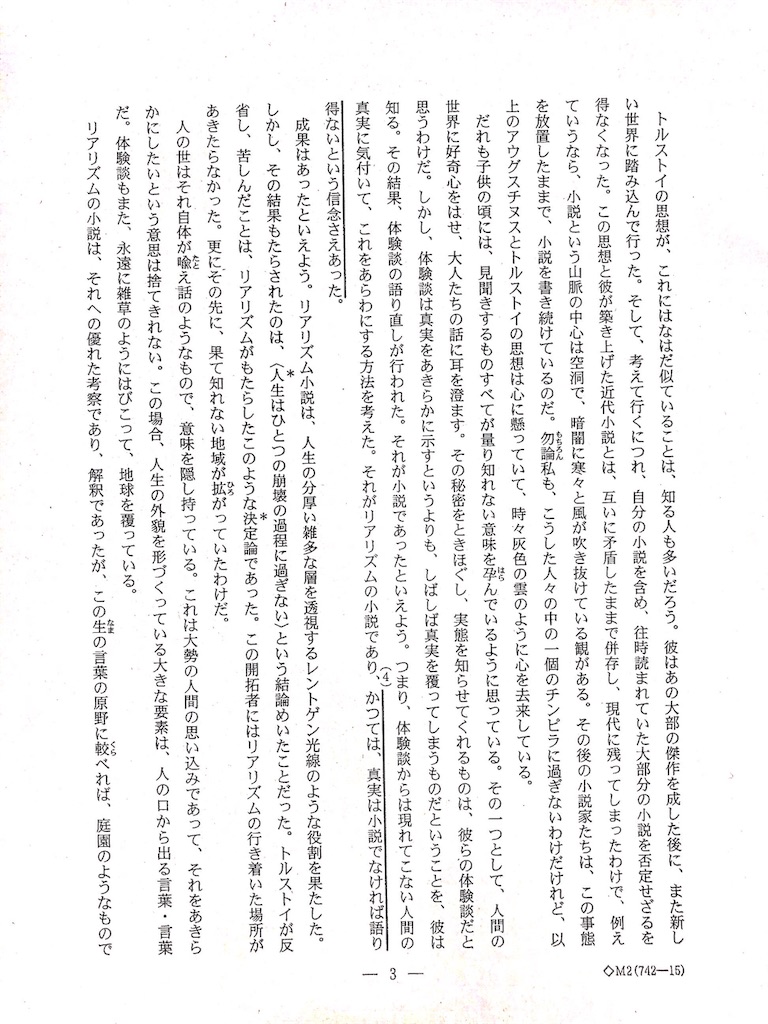 トルストイの思想が、これにはなはだ似ていることは、知る人も多いだろう。彼はあの大部の傑作を成した後に、また新し
い世界に踏み込んで行った。そして、考えて行くにつれ、自分の小説を含め、往時読まれていた大部分の小説を否定せざるを
得なくなった。この思想と彼が築き上げた近代小説とは、互いに矛盾したままで併存し、現代に残ってしまったわけで、例え
ていうなら、小説という山脈の中心は空洞で、暗闇に寒々と風が吹き抜けている観がある。その後の小説家たちは、この事態
を放置したままで、小説を書き続けているのだ。勿論私も、こうした人々の中の一個のチンピラに過ぎないわけだけれど、以
もちろん
上のアウグスチヌスとトルストイの思想は心に懸っていて、時々灰色の雲のように心を去来している。
だれも子供の頃には、見聞きするものすべてが量り知れない意味を孕んでいるように思っている。その一つとして、人間の
はら
世界に好奇心をはせ、大人たちの話に耳を澄ます。その秘密をときほぐし、実態を知らせてくれるものは、彼らの体験談だと
思うわけだ。しかし、体験談は真実をあきらかに示すというよりも、しばしば真実を覆ってしまうものだということを、彼は
知る。その結果、体験談の語り直しが行われた。それが小説であったといえよう。つまり、体験談からは現れてこない人間の
真実に気付いて、これをあらわにする方法を考えた。それがリアリズムの小説であり、かつては、真実は小説でなければ語り
(4)
得ないという信念さえあった。
成果はあったといえよう。リアリズム小説は、人生の分厚い雑多な層を透視するレントゲン光線のような役割を果たした。
しかし、その結果もたらされたのは、〈人生はひとつの崩壊の過程に過ぎない〉という結論めいたことだった。トルストイが反
*
省し、苦しんだことは、リアリズムがもたらしたこのような決定論であった。この開拓者にはリアリズムの行き着いた場所が
*
あきたらなかった。更にその先に、果て知れない地域が拡がっていたわけだ。
ひろ
人の世はそれ自体が喩え話のようなもので、意味を隠し持っている。これは大勢の人間の思い込みであって、それをあきら
たと
かにしたいという意思は捨てきれない。この場合、人生の外貌を形づくっている大きな要素は、人の口から出る言葉・言葉
だ。体験談もまた、永遠に雑草のようにはびこって、地球を覆っている。
リアリズムの小説は、それへの優れた考察であり、解釈であったが、この生の言葉の原野に較べれば、庭園のようなもので
なま
くら
— 3 —
◇M2(742—15)